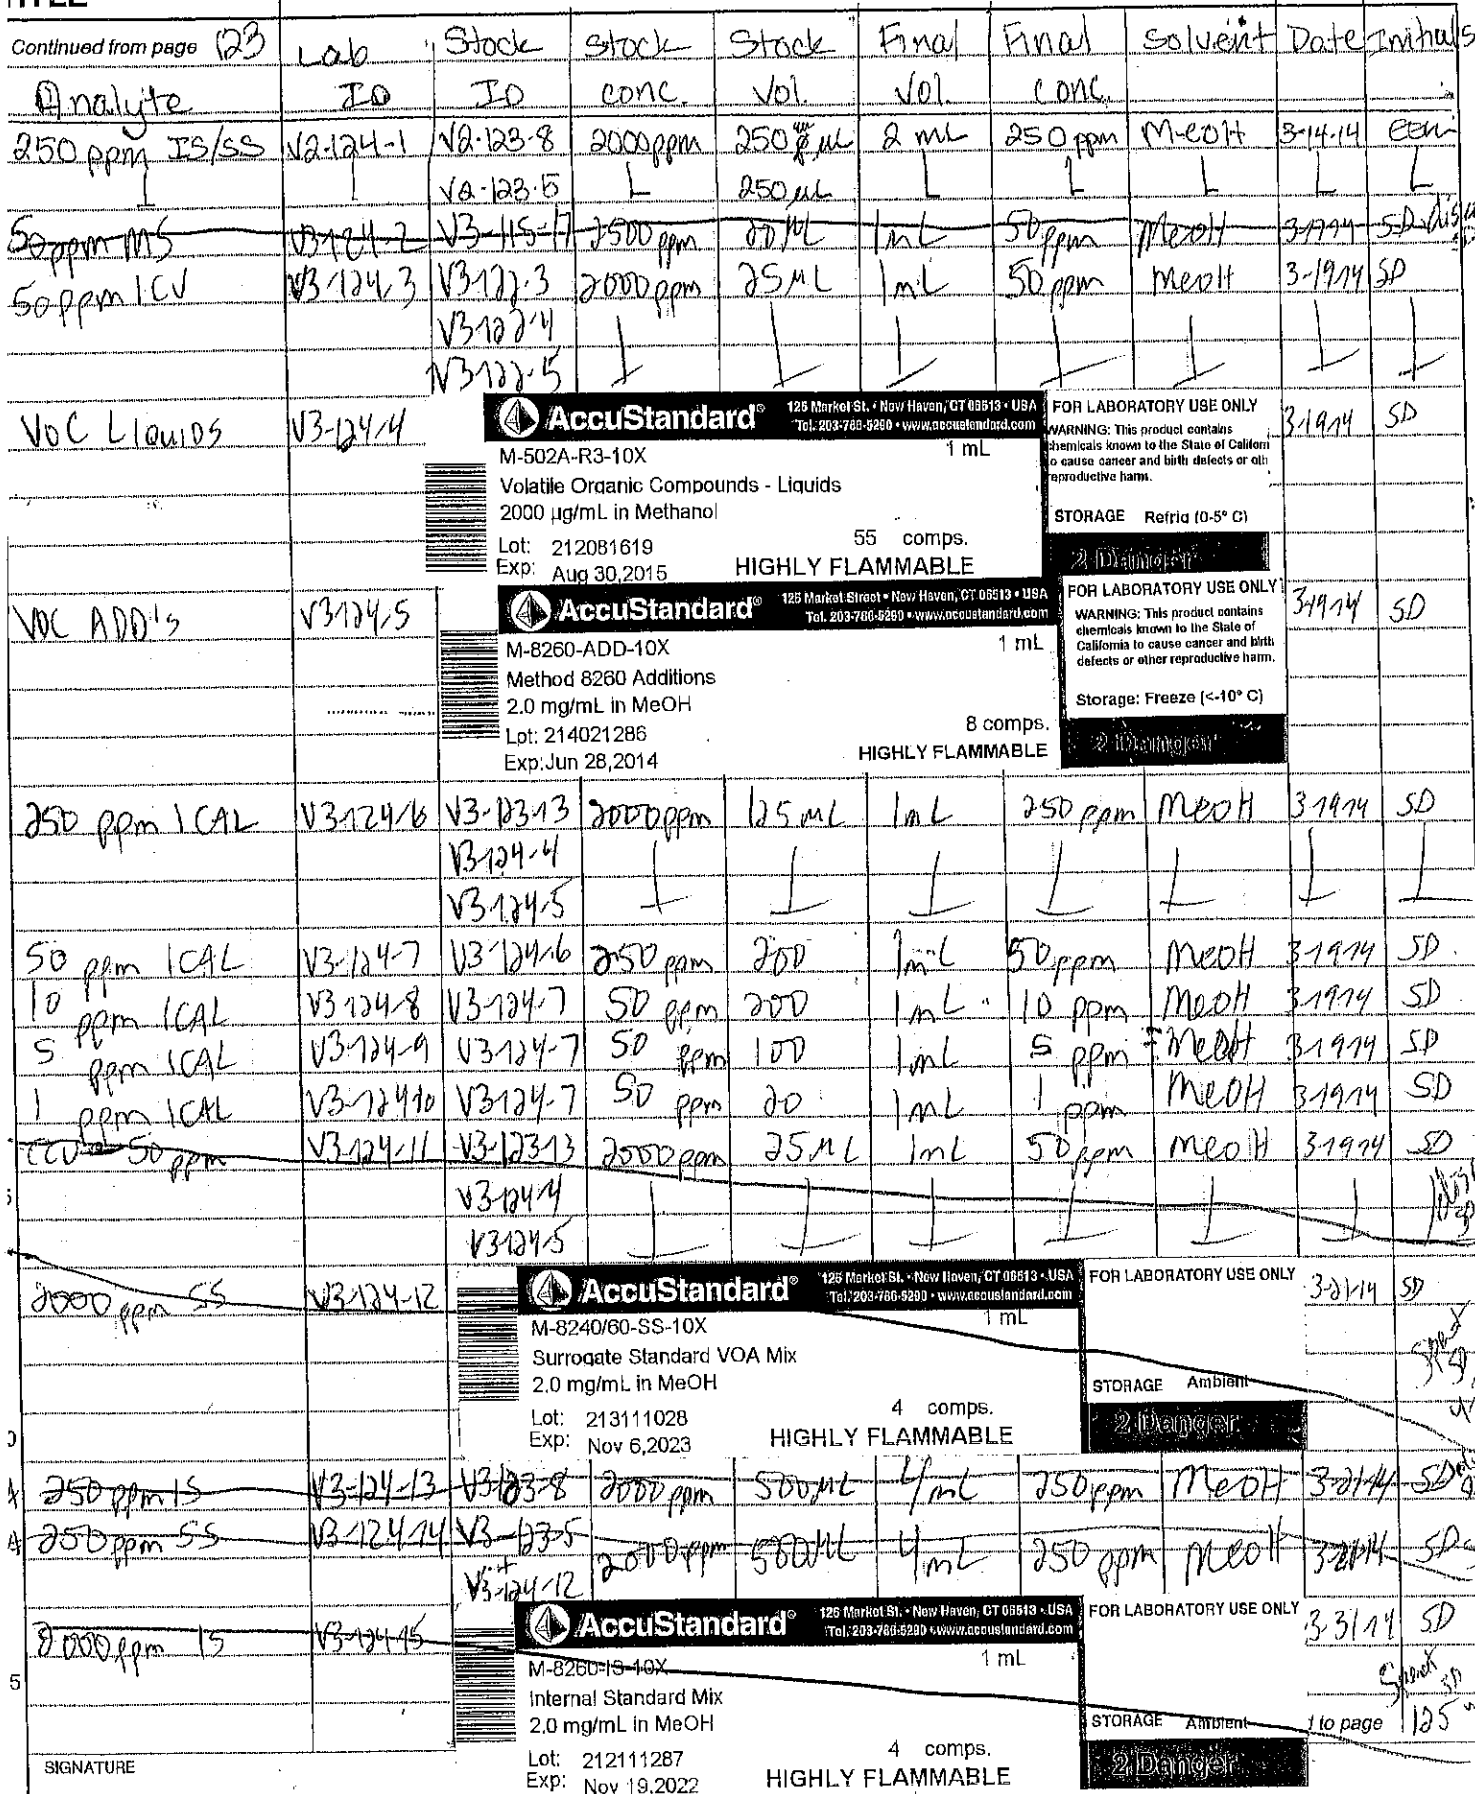 TITLE
Continued from page 123 Lab Stock Stock Stock Final Final Solvent Date Initials
Analyte ID ID conc. Vol. Vol. conc.
250 ppm IS/SS V2-124-1 V2-123-8 2000ppm 250 µL 2 mL 250 ppm MeOH 3-14-14
V2-123-5 250 µL
50 ppm MS V3-124-2 V3-115-17 2500 ppm 20 µL 1mL 50 ppm MeOH 3-19-14 SD
50 ppm ICV V3-124-3 V3-122-3 2000 ppm 25 µL 1mL 50 ppm MeOH 3-19-14 SD
V3-122-4
V3-122-5
VOC LIQUIDS V3-124-4 3-19-14 SD
AccuStandard® 125 Market St. • New Haven, CT 06513 • USA
Tel. 203-786-5290 • www.accustandard.com
M-502A-R3-10X 1 mL
Volatile Organic Compounds - Liquids
2000 µg/mL in Methanol
Lot: 212081619 55 comps.
Exp: Aug 30,2015 HIGHLY FLAMMABLE
FOR LABORATORY USE ONLY
WARNING: This product contains
chemicals known to the State of Californ
o cause cancer and birth defects or oth
eproductive harm.
STORAGE Refrig (0-5° C)
2 Danger
VOC ADD's V3-124-5 3-19-14 SD
AccuStandard® 125 Market Street • New Haven, CT 06513 • USA
Tel. 203-786-5290 • www.accustandard.com
M-8260-ADD-10X 1 mL
Method 8260 Additions
2.0 mg/mL in MeOH
Lot: 214021286 8 comps.
Exp:Jun 28,2014 HIGHLY FLAMMABLE
FOR LABORATORY USE ONLY
WARNING: This product contains
chemicals known to the State of
California to cause cancer and birth
defects or other reproductive harm.
Storage: Freeze (<-10° C)
2 Danger
250 ppm ICAL V3-124-6 V3-123-13 2000ppm 125 µL 1mL 250 ppm MeOH 3-19-14 SD
V3-124-4
V3-124-5
50 ppm ICAL V3-124-7 V3-124-6 250 ppm 200 1mL 50 ppm MeOH 3-19-14 SD
10 ppm ICAL V3-124-8 V3-124-7 50 ppm 200 1mL 10 ppm MeOH 3-19-14 SD
5 ppm ICAL V3-124-9 V3-124-7 50 ppm 100 1mL 5 ppm MeOH 3-19-14 SD
1 ppm ICAL V3-124-10 V3-124-7 50 ppm 20 1mL 1 ppm MeOH 3-19-14 SD
CCV 50 ppm V3-124-11 V3-123-13 2000ppm 25 µL 1mL 50 ppm MeOH 3-19-14 SD
V3-124-4
V3-124-5
2000 ppm SS V3-124-12 3-21-14 SD
AccuStandard® 125 Market St. • New Haven, CT 06513 • USA
Tel. 203-786-5290 • www.accustandard.com
M-8240/60-SS-10X 1 mL
Surrogate Standard VOA Mix
2.0 mg/mL in MeOH
Lot: 213111028 4 comps.
Exp: Nov 6,2023 HIGHLY FLAMMABLE
FOR LABORATORY USE ONLY
STORAGE Ambient
2 Danger
Spent SD
250 ppm IS V3-124-13 V3-123-8 2000 ppm 500 µL 4 mL 250 ppm MeOH 3-21-14 SD
250 ppm SS V3-124-14 V3-123-5 2000 ppm 500 µL 4 mL 250 ppm MeOH 3-21-14 SD
+
V3-124-12
2000 ppm IS V3-124-15 3-31-14 SD
AccuStandard® 125 Market St. • New Haven, CT 06513 • USA
Tel. 203-786-5290 • www.accustandard.com
M-8260-IS-10X 1 mL
Internal Standard Mix
2.0 mg/mL in MeOH
Lot: 212111287 4 comps.
Exp: Nov 19,2022 HIGHLY FLAMMABLE
FOR LABORATORY USE ONLY
STORAGE Ambient
2 Danger
Spent SD
to page 125
SIGNATURE